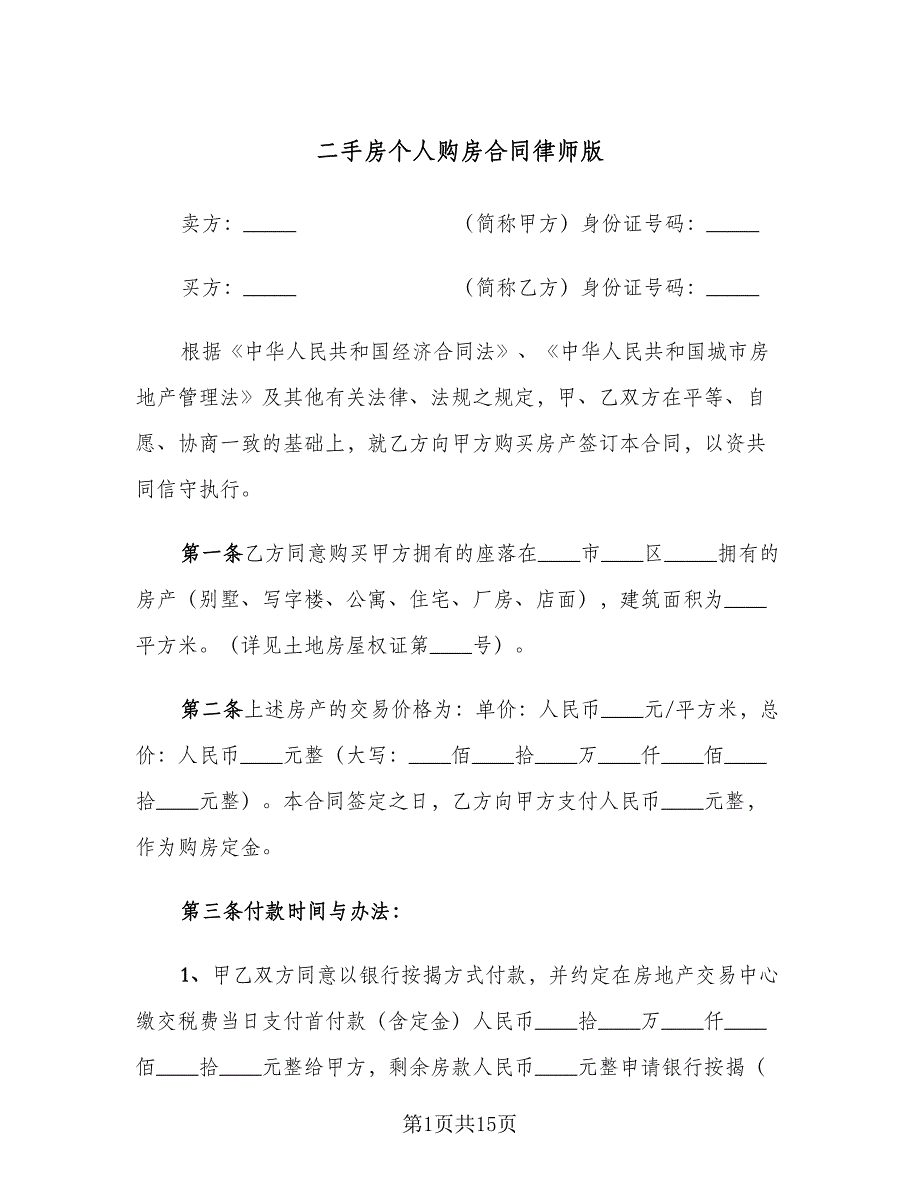 二手房个人购房合同律师版
卖方：_____ （简称甲方）身份证号码：_____
买方：_____ （简称乙方）身份证号码：_____
根据《中华人民共和国经济合同法》、《中华人民共和国城市房
地产管理法》及其他有关法律、法规之规定，甲、乙双方在平等、自
愿、协商一致的基础上，就乙方向甲方购买房产签订本合同，以资共
同信守执行。
第一条乙方同意购买甲方拥有的座落在____市____区_____拥有的
房产（别墅、写字楼、公寓、住宅、厂房、店面），建筑面积为____
平方米。（详见土地房屋权证第____号）。
第二条上述房产的交易价格为：单价：人民币____元/平方米，总
价：人民币____元整（大写：____佰____拾____万____仟____佰____
拾____元整）。本合同签定之日，乙方向甲方支付人民币____元整，
作为购房定金。
第三条付款时间与办法：
1、甲乙双方同意以银行按揭方式付款，并约定在房地产交易中心
缴交税费当日支付首付款（含定金）人民币____拾____万____仟____
佰____拾____元整给甲方，剩余房款人民币____元整申请银行按揭（
第1页共15页